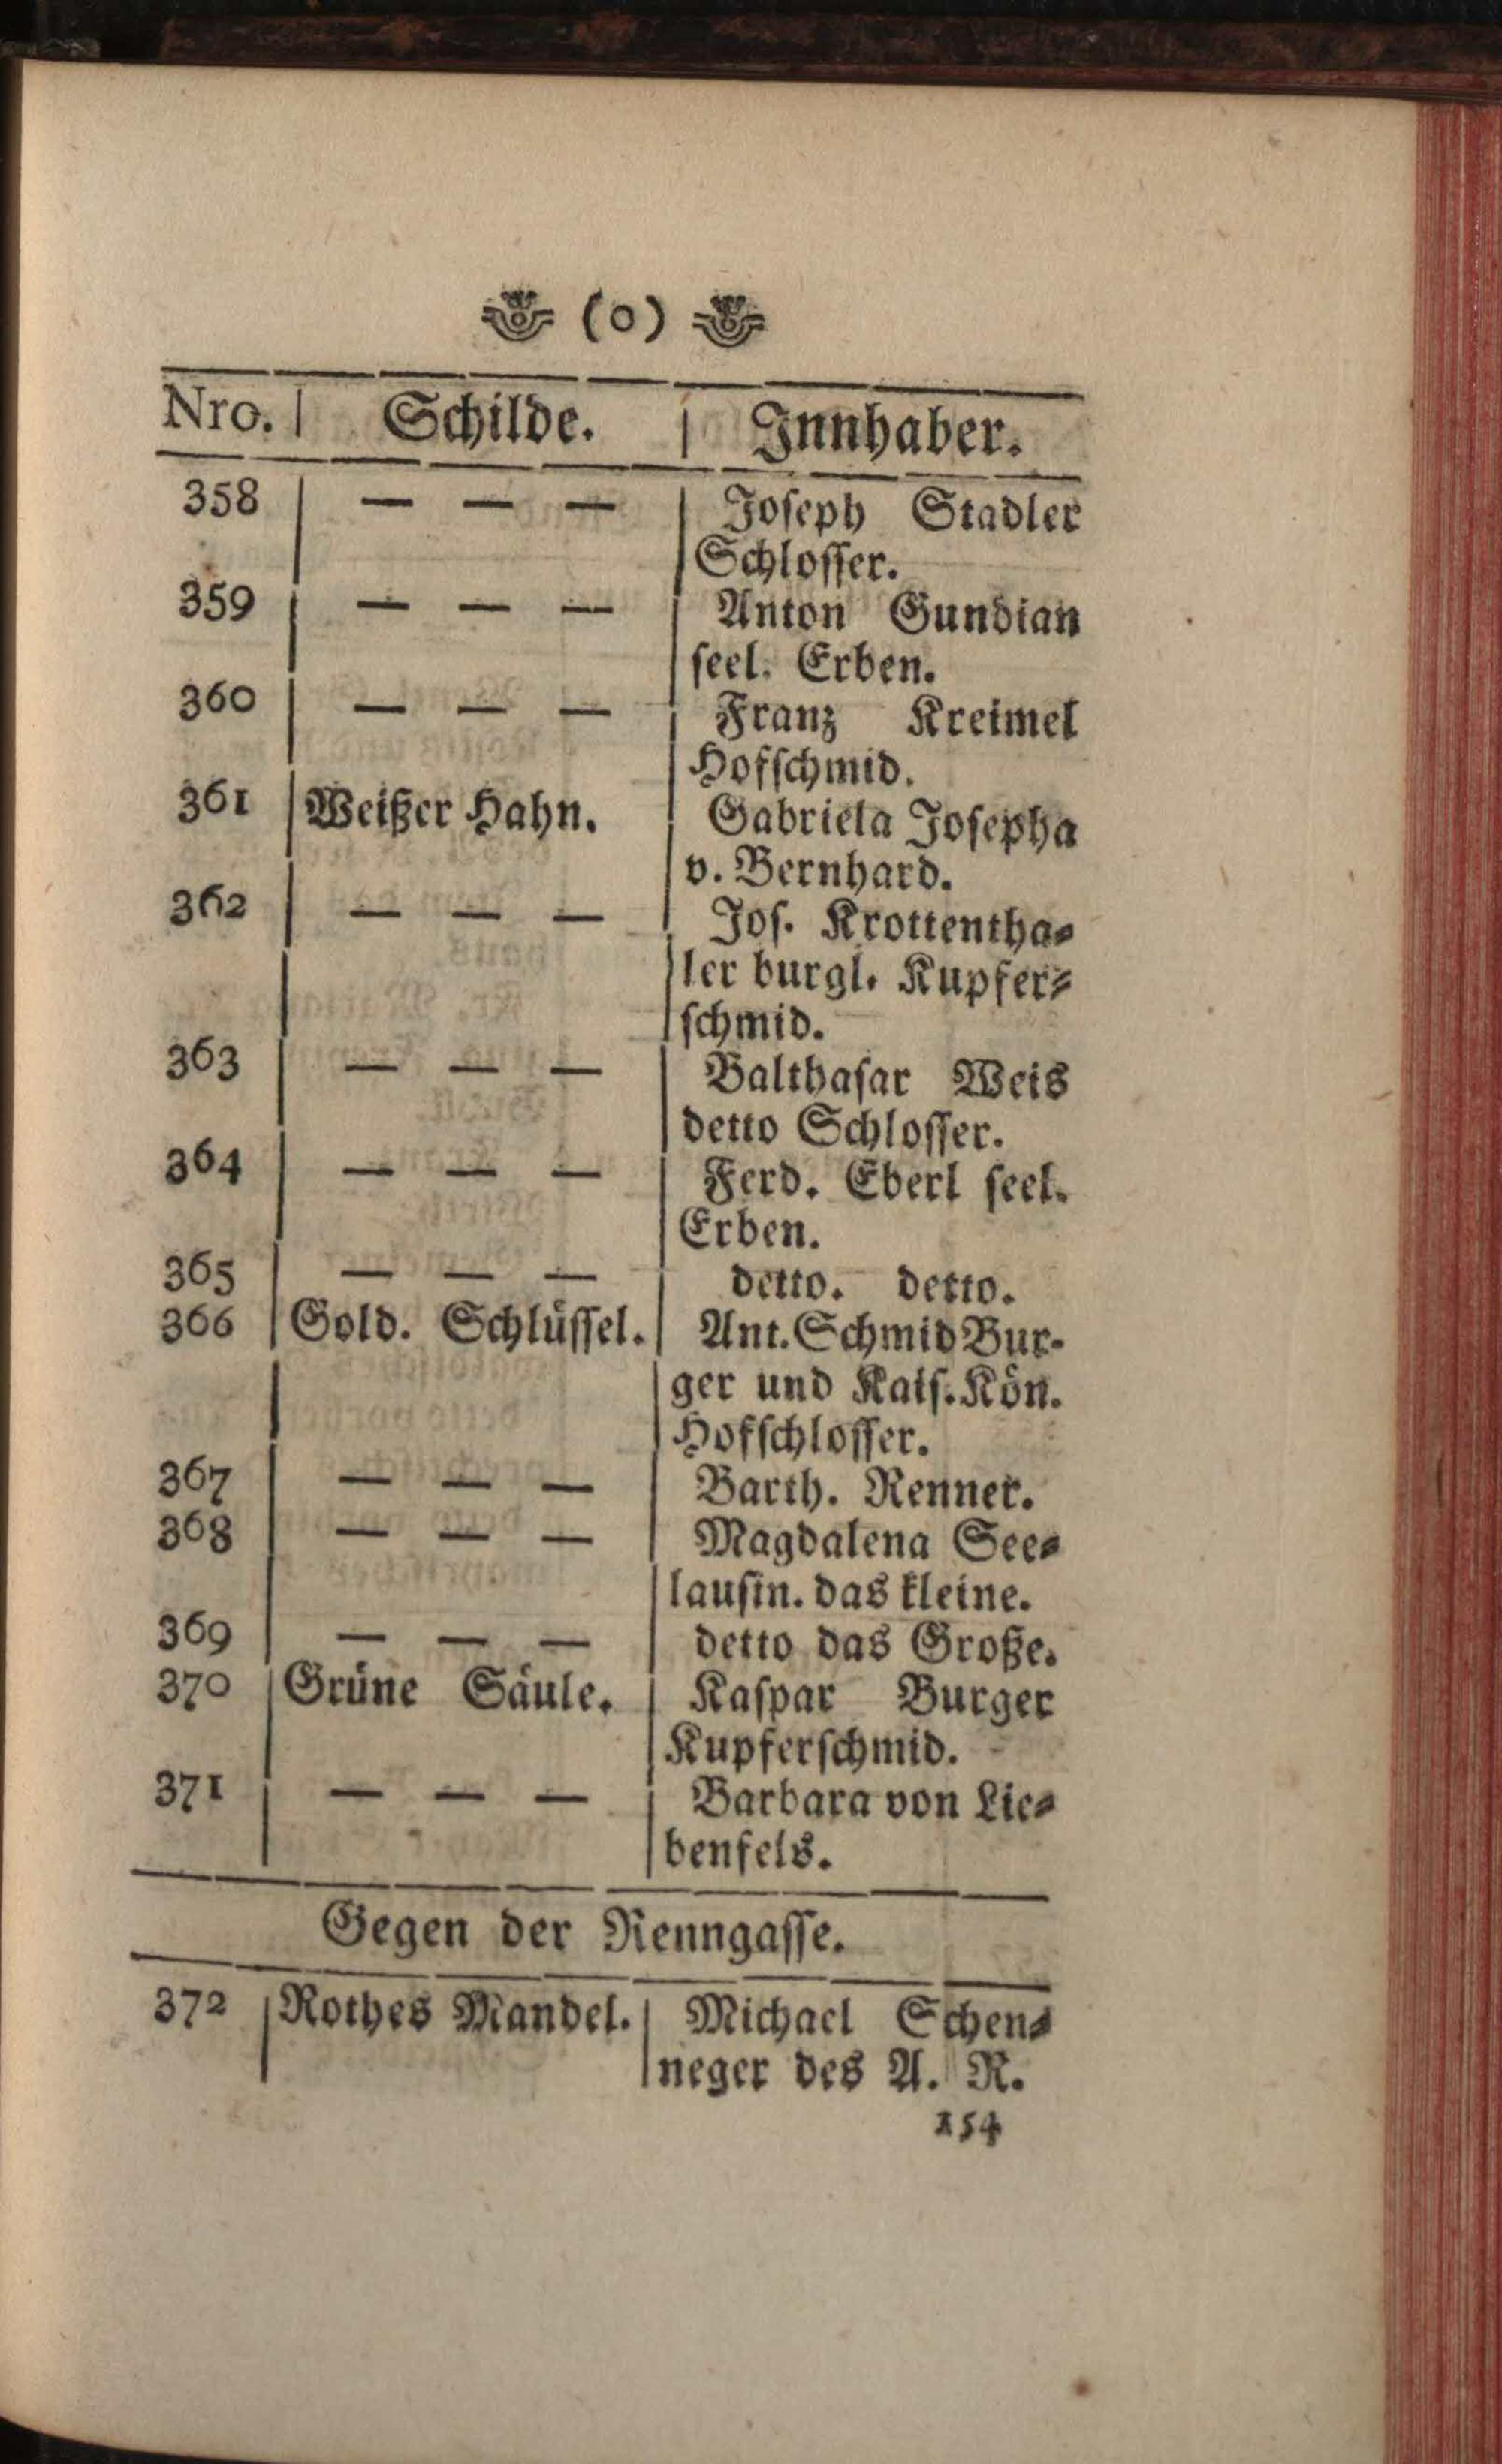 (0)
Nro. | Schilde. | Innhaber.
358 | — — — | Joseph Stadler
Schlosser.
359 | — — — | Anton Gundian
seel. Erben.
360 | — — — | Franz Kreimel
Hofschmid.
361 | Weißer Hahn. | Gabriela Josepha
v. Bernhard.
362 | — — — | Jos. Krottentha-
ler burgl. Kupfer-
schmid.
363 | — — — | Balthasar Weis
detto Schlosser.
364 | — — — | Ferd. Eberl seel.
Erben.
365 | — — — | detto. detto.
366 | Gold. Schlüssel. | Ant. Schmid Bur-
ger und Kais. Kön.
Hofschlosser.
367 | — — — | Barth. Renner.
368 | — — — | Magdalena See-
lausin. das kleine.
369 | — — — | detto das Große.
370 | Grüne Säule. | Kaspar Burger
Kupferschmid.
371 | — — — | Barbara von Lie-
benfels.
Gegen der Renngasse.
372 | Rothes Mandel. | Michael Schen-
neger des A. R.
154